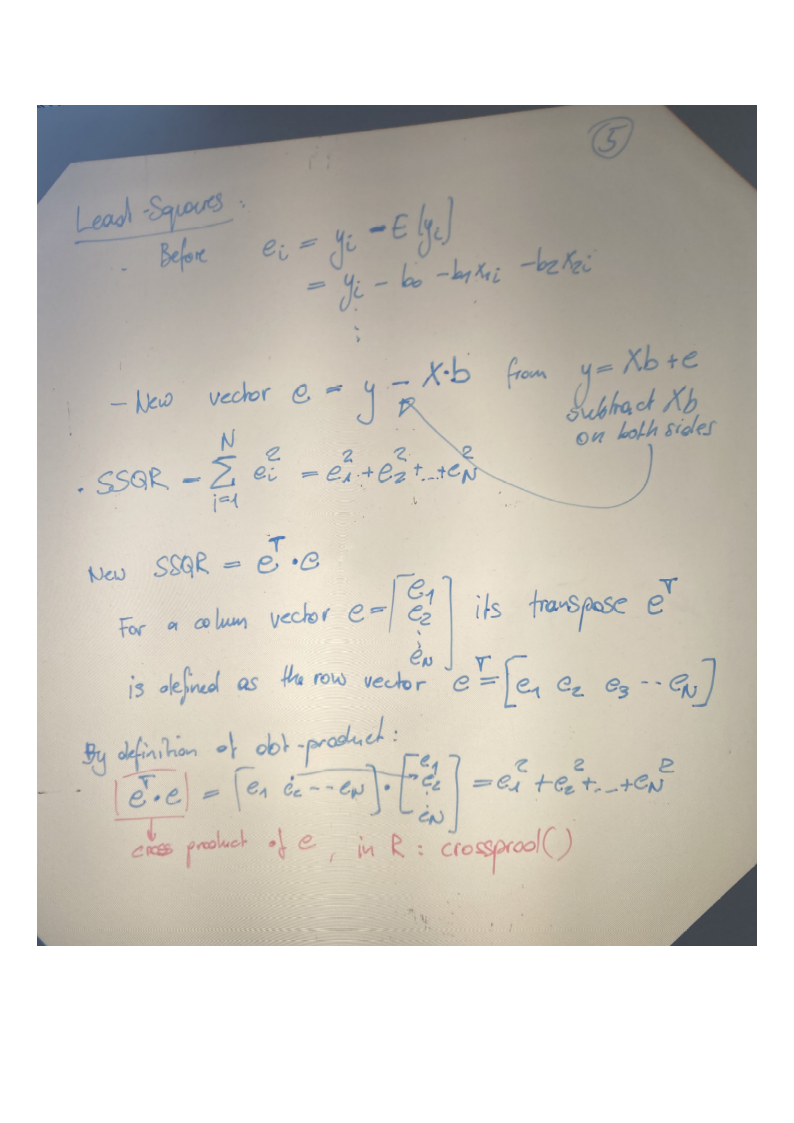 5
Least-Squares:
. Before e_i = y_i - E[y_i]
= y_i - b_0 - b_1 x_1i - b_2 x_2i
⋮
- New vector e = y - X·b from y = Xb + e
subtract Xb
on both sides
. SSQR = ∑_{i=1}^{N} e_i^2 = e_1^2 + e_2^2 + ... + e_N^2
New SSQR = e^T · e
For a colum vector e = [e_1 e_2 ⋮ e_N] its transpose e^T
is defined as the row vector e^T = [e_1 e_2 e_3 ... e_N]
By definition of dot-product:
e^T · e = [e_1 e_2 ... e_N] · [e_1 e_2 ⋮ e_N] = e_1^2 + e_2^2 + ... + e_N^2
cross product of e, in R: crossprod()